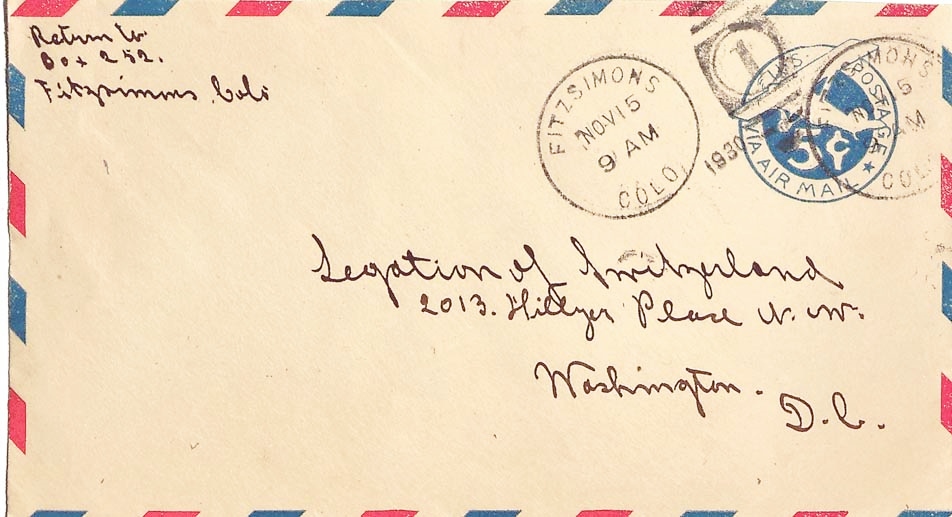 Return to
Box 252.
Fitzsimons, Colo
FITZSIMONS
NOV 15
9 AM
COLO.
1930
1
U.S. POSTAGE
5¢
VIA AIR MAIL
MONS
NO 5
AM
COL
Legation of Switzerland
2013. Hillyer Place N. W.
Washington.
D. C.